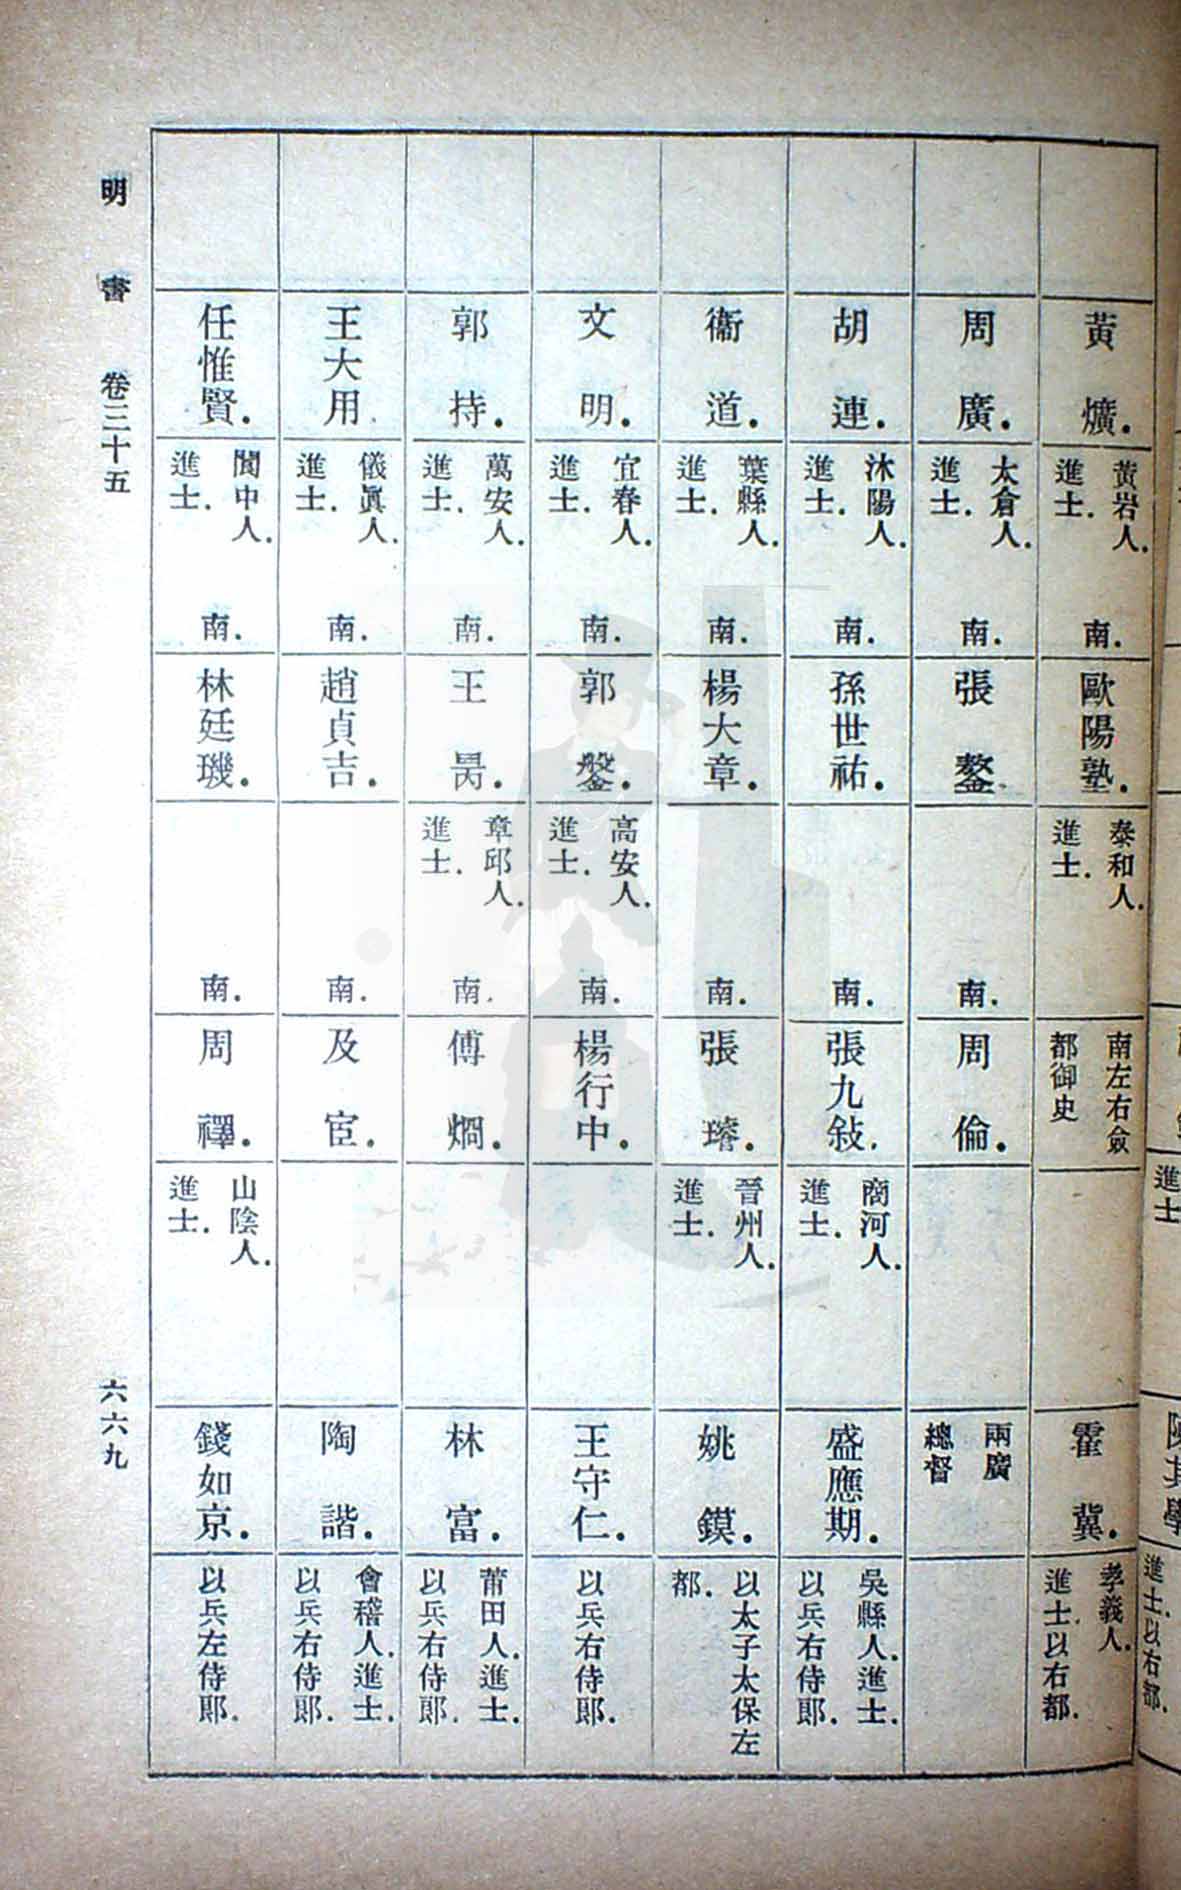 黃爌．
黃岩人．
進士．
南．
歐陽塾．
泰和人．
進士．
南左右僉
都御史
霍冀．
孝義人．
進士．以右都．
周廣．
太倉人．
進士．
南．
張鏊．
南．
周倫．
兩廣
總督
胡連．
沐陽人．
進士．
南．
孫世祐．
南．
張九敍．
商河人．
進士．
盛應期．
吳縣人．進士．
以兵右侍郎．
衞道．
葉縣人．
進士．
南．
楊大章．
南．
張璿．
晉州人．
進士．
姚鏌．
以太子太保左
都．
文明．
宜春人．
進士．
南．
郭鋬．
高安人．
進士．
南．
楊行中．
王守仁．
以兵右侍郎．
郭持．
萬安人．
進士．
南．
王昺．
章邱人．
進士．
南．
傅烱．
林富．
莆田人．進士．
以兵右侍郎．
王大用．
儀眞人．
進士．
南．
趙貞吉．
南．
及宦．
陶諧．
會稽人．進士．
以兵右侍郎．
任惟賢．
閬中人．
進士．
南．
林廷璣．
南．
周襗．
山陰人．
進士．
錢如京．
以兵左侍郎．
明書　卷三十五
六六九